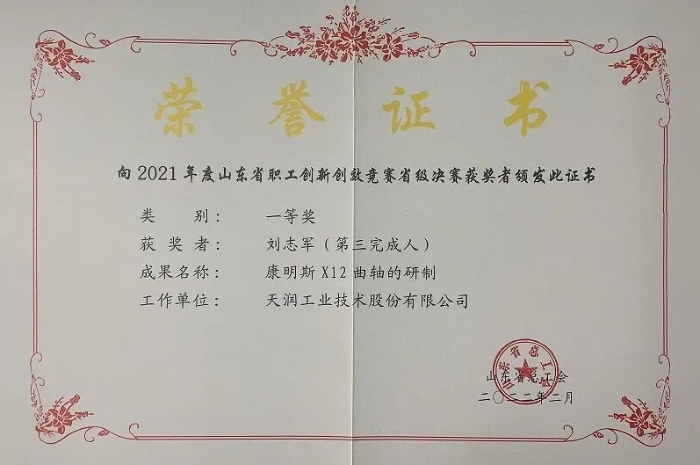 荣誉证书
向2021年度山东省职工创新创效竞赛省级决赛获奖者颁发此证书
类别：一等奖
获奖者：刘志军（第三完成人）
成果名称：康明斯X12曲轴的研制
工作单位：天润工业技术股份有限公司
山东省总工会
山东省总工会
二〇二二年二月